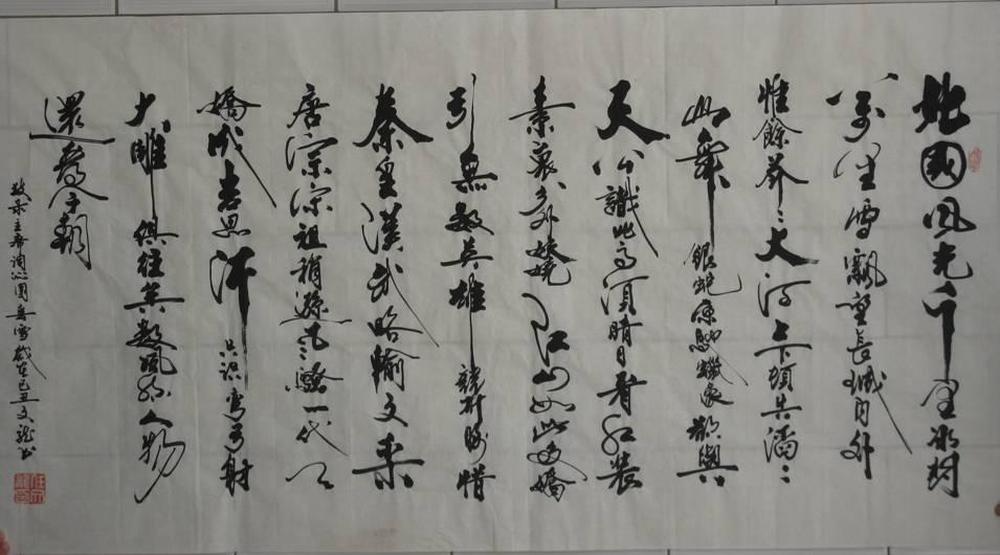 北國風光千里冰封
萬里雪飄望長城内外
惟餘莽々大河上下頓失滔々
山舞銀蛇原馳蠟象欲與
天公試比高須晴日看紅裝
素裹分外妖嬈江山如此多嬌
引無數英雄競折腰惜
秦皇漢武略輸文采
唐宗宋祖稍遜風騷一代天
驕成吉思汗只識彎弓射
大雕俱往矣數風流人物
還看今朝
敬录主席詞沁園春雪歲在己丑文龍書